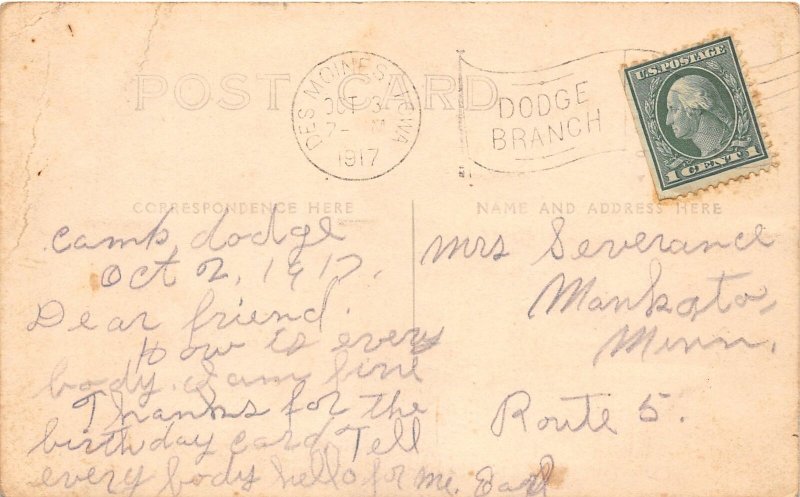 POST CARD
DES MOINES, IOWA
OCT 3
7- M
1917
DODGE
BRANCH
U.S. POSTAGE
1 CENT 1
CORRESPONDENCE HERE
NAME AND ADDRESS HERE
Camp, dodge
Oct 2, 1917.
Dear friend.
How is every
body. I am fine
Thanks for the
birthday card, Tell
every body hello for me. Earl
Mrs Severance
Mankato,
Minn.
Route 5.